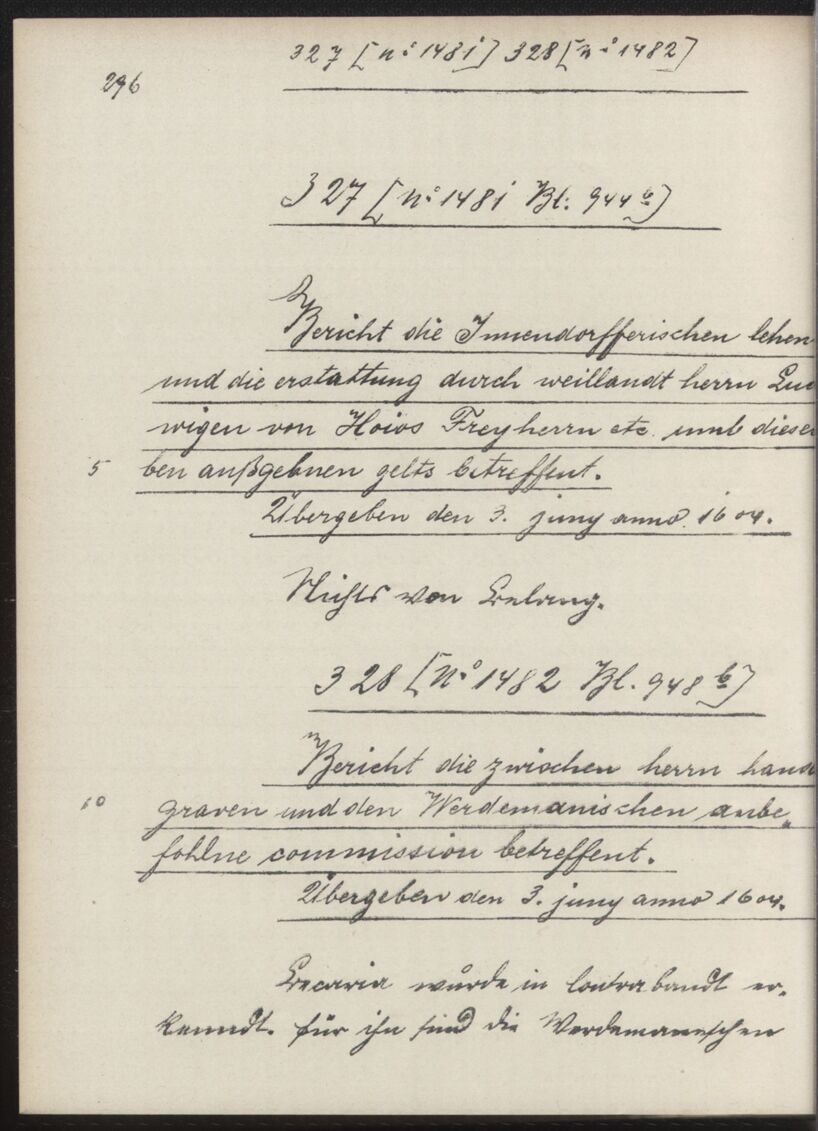 327 [n° 1481] 328 [n° 1482]
296
327 [n° 1481 Bl. 944 b]
Bericht die Innendorfferischen lehen
und die erstattung durch weillandt herrn Lud
wigen von Hoios Freyherrn etc. umb diesel
5 ben außgebnen gelts betreffent.
Übergeben den 3. juny anno 1604.
Nichts von Belang.
328 [N° 1482 Bl. 948 b]
Bericht die zwischen herrn hans
10 graven und den Werdemanischen anbe„
fohlne commission betreffent.
Übergeben den 3. juny anno 1604.
wurde in Contrabandt er-
kenndt. für ihn sind die Werdemanischen